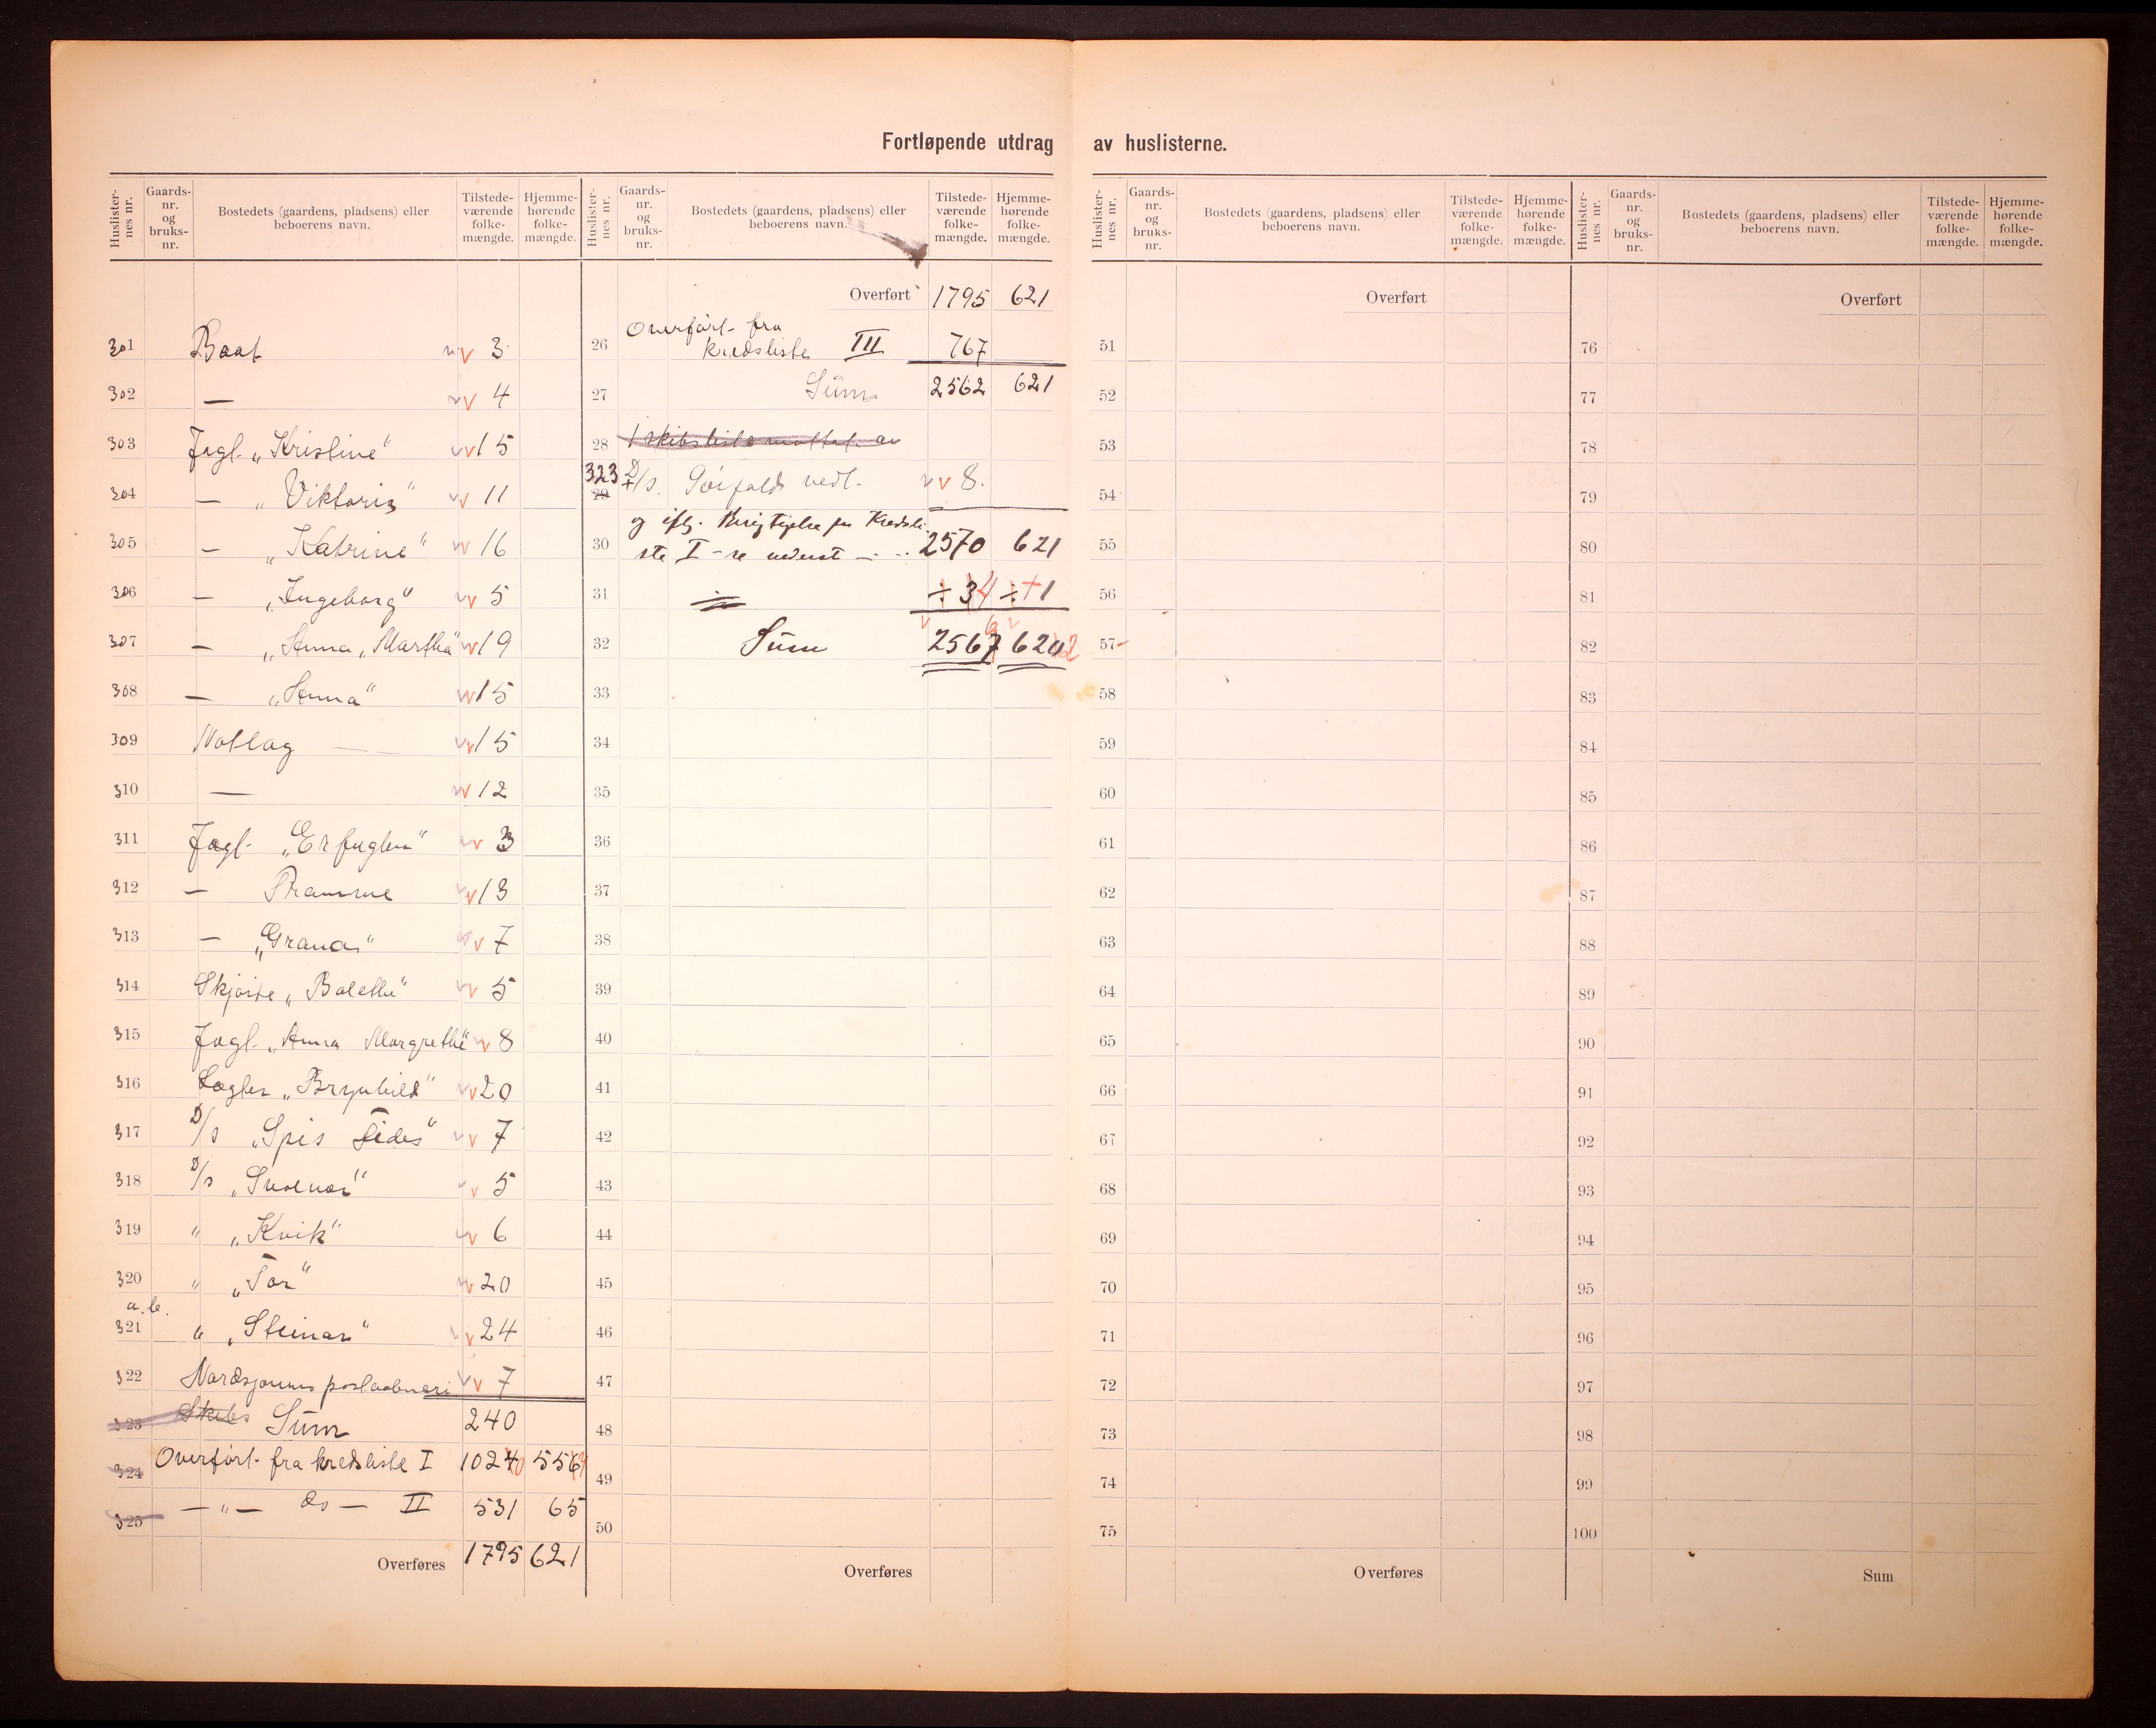 Fortløpende utdrag av huslisterne.
Huslister-nes nr. Gaards-nr. og bruks-nr. Bostedets (gaardens, pladsens) eller beboerens navn. Tilstede-værende folke-mængde. Hjemme-hørende folke-mængde.
301 Baat 3
302 — 4
303 Jagt „Kristine" 15
304 — „Viktoria" 11
305 — „Katrine" 16
306 — „Ingeborg" 5
307 — „Anna Martha" 19
308 — „Anna" 15
309 Notlag — 15
310 — 12
311 Jagt „Erfuglen" 3
312 — Pramme 13
313 — „Grana" 7
314 Skjøite „Balethe" 5
315 Jagt „Anna Margrethe" 8
316 Lægter „Brynhild" 20
317 D/s „Spis Fides" 7
318 D/s „Svolvær" 5
319 " „Kvik" 6
320 " „Tor" 20
a.b.
321 " „Steinar" 24
322 Nordsjøens postaabneri 7
323 Skibs Sum 240
324 Overført fra kredsliste I 1024 556
325 — " — do — II 531 65
Overføres 1795 621
Huslister-nes nr. Gaards-nr. og bruks-nr. Bostedets (gaardens, pladsens) eller beboerens navn. Tilstede-værende folke-mængde. Hjemme-hørende folke-mængde.
Overført 1795 621
Overført fra
26 kredsliste III 767
27 Sum 2562 621
28 1 skibsliste mottat av
323 29 D/s. vedl. 8.
og iflg. Kredsli-
30 ste I - se nederst — 2570 621
31 ÷ 3 4 ÷ + 1
32 Sum 2567 6 620 2
33
34
35
36
37
38
39
40
41
42
43
44
45
46
47
48
49
50
Overføres
Huslister-nes nr. Gaards-nr. og bruks-nr. Bostedets (gaardens, pladsens) eller beboerens navn. Tilstede-værende folke-mængde. Hjemme-hørende folke-mængde.
Overført
51
52
53
54
55
56
57
58
59
60
61
62
63
64
65
66
67
68
69
70
71
72
73
74
75
Overføres
Huslister-nes nr. Gaards-nr. og bruks-nr. Bostedets (gaardens, pladsens) eller beboerens navn. Tilstede-værende folke-mængde. Hjemme-hørende folke-mængde.
Overført
76
77
78
79
80
81
82
83
84
85
86
87
88
89
90
91
92
93
94
95
96
97
98
99
100
Sum